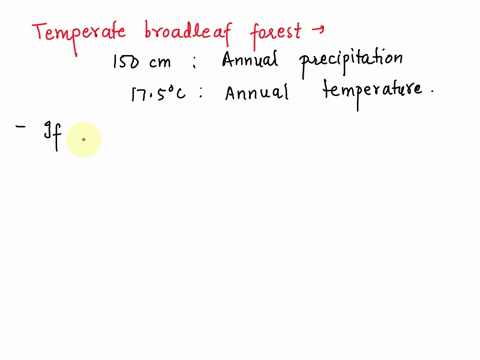 Temperate broadleaf forest →
150 cm : Annual precipitation
17.5°C : Annual temperature.
- If